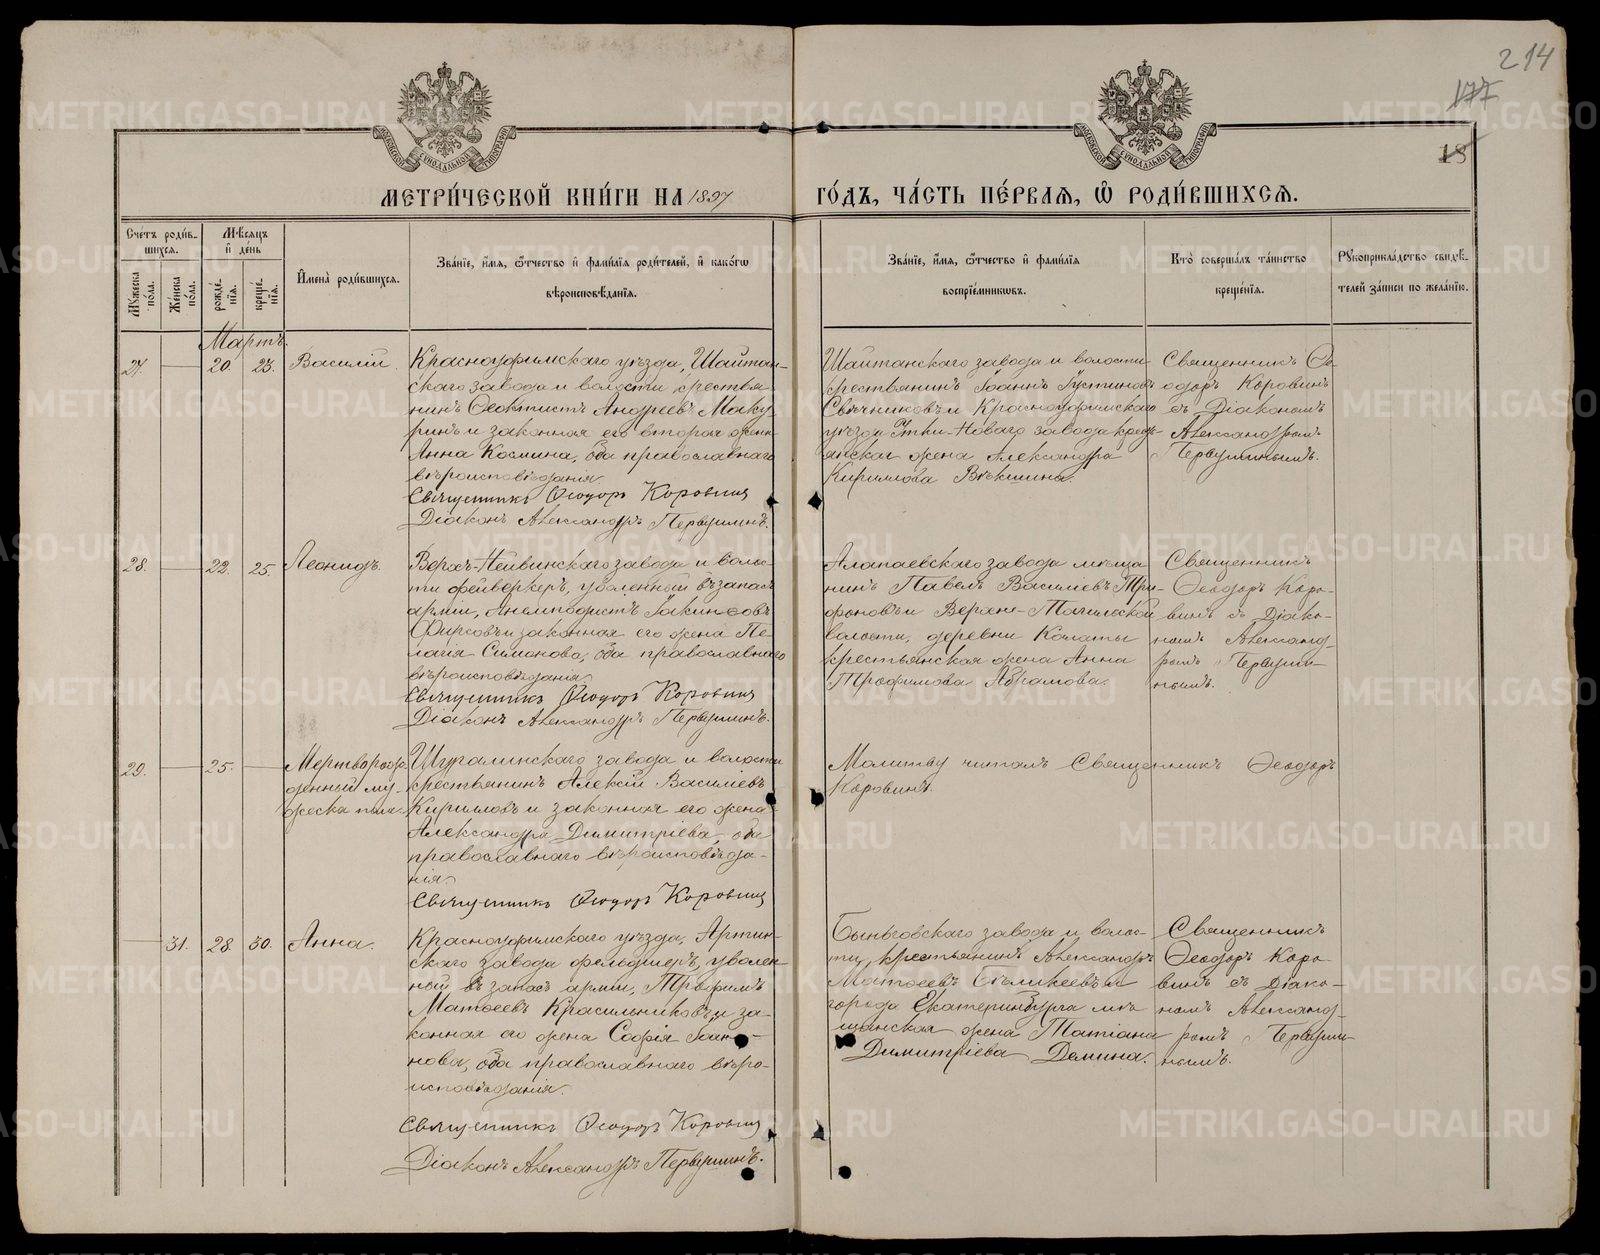 214
177
18
МЕТРИ́ЧЕСКОЙ КНИ́ГИ НА 1897
ГО́ДЪ, ЧА́СТЬ ПЕ́РВАЯ, Ѿ РОДИ́ВШИХСЯ.
Сче́тъ роди́в-
шихся.
Му́жеска по́ла.
Же́нска по́ла.
Мѣ́сяцъ
и де́нь
рожде́-
нія.
креще́-
нія.
Имена̀ роди́вшихся.
Зва́ніе, и́мя, ѻ́тчество и фами́лія роди́телей, и како́гѡ
вѣроисповѣ́данія.
Зва́ніе, и́мя, ѻ́тчество и фами́лія
воспріе́мниковъ.
Кто̀ соверша́лъ та́инство
креще́нія.
Рукоприкла́дство свидѣ́-
телей за́писи по жела́нію.
Мартъ.
27. 20. 23. Василій.
Красноуфимскаго уѣзда, Шайтан-
скаго завода и волости крестья-
нинъ Ѳеоктистъ Андреевъ Маку-
ринъ и законная его вторая жена
Анна Космина, оба православнаго
вѣроисповѣданія.
Священникъ Ѳеодоръ Коровинъ
Діаконъ Александръ Первушинъ.
Шайтанскаго завода и волости
крестьянинъ Іоаннъ Іустиновъ
Свѣчниковъ и Красноуфимскаго
уѣзда Утки-Новаго завода кресть-
янская жена Александра
Кириллова Вѣкшина.
Священникъ Ѳе-
одоръ Коровинъ
съ Діакономъ
Александромъ
Первушинымъ.
28. 22. 25. Леонидъ.
Верхъ-Нейвинскаго завода и волос-
ти фейверкеръ, уволенный въ запасъ
арміи, Анемподистъ Іакинѳовъ
Фирсовъ и законная его жена Пе-
лагія Симонова, оба православнаго
вѣроисповѣданія.
Священникъ Ѳеодоръ Коровинъ
Діаконъ Александръ Первушинъ.
Алапаевскаго завода мѣща-
нинъ Павелъ Василіевъ Три-
фоновъ и Верхне-Тагильской
волости, деревни Калаты
крестьянская жена Анна
Трофимова Абрамова.
Священникъ
Ѳеодоръ Коро-
винъ съ Діако-
номъ Александ-
ромъ Первуши-
нымъ.
29. 25. Мерторож-
денный му-
жеска пола.
Шуралинскаго завода и волости
крестьянинъ Алексій Василіевъ
Кирилловъ и законная его жена
Александра Димитріева, оба
православнаго вѣроисповѣда-
нія.
Священникъ Ѳеодоръ Коровинъ
Молитву читалъ Священникъ Ѳеодоръ
Коровинъ.
31. 28. 30. Анна.
Красноуфимскаго уѣзда, Артин-
скаго завода фельдшеръ, уволен-
ный въ запасъ арміи, Трофимъ
Матѳеевъ Красильниковъ и за-
конная его жена Софія Іоан-
нова, оба православнаго вѣро-
исповѣданія.
Священникъ Ѳеодоръ Коровинъ
Діаконъ Александръ Первушинъ.
Быньговскаго завода и волос-
ти, крестьянинъ Александръ
Матѳеевъ и
города Екатеринбурга мѣ-
щанская жена Татіана
Димитріева Демина.
Священникъ
Ѳеодоръ Коро-
винъ съ Діако-
номъ Александ-
ромъ Первуши-
нымъ.
METRIKI.GASO-URAL.RU